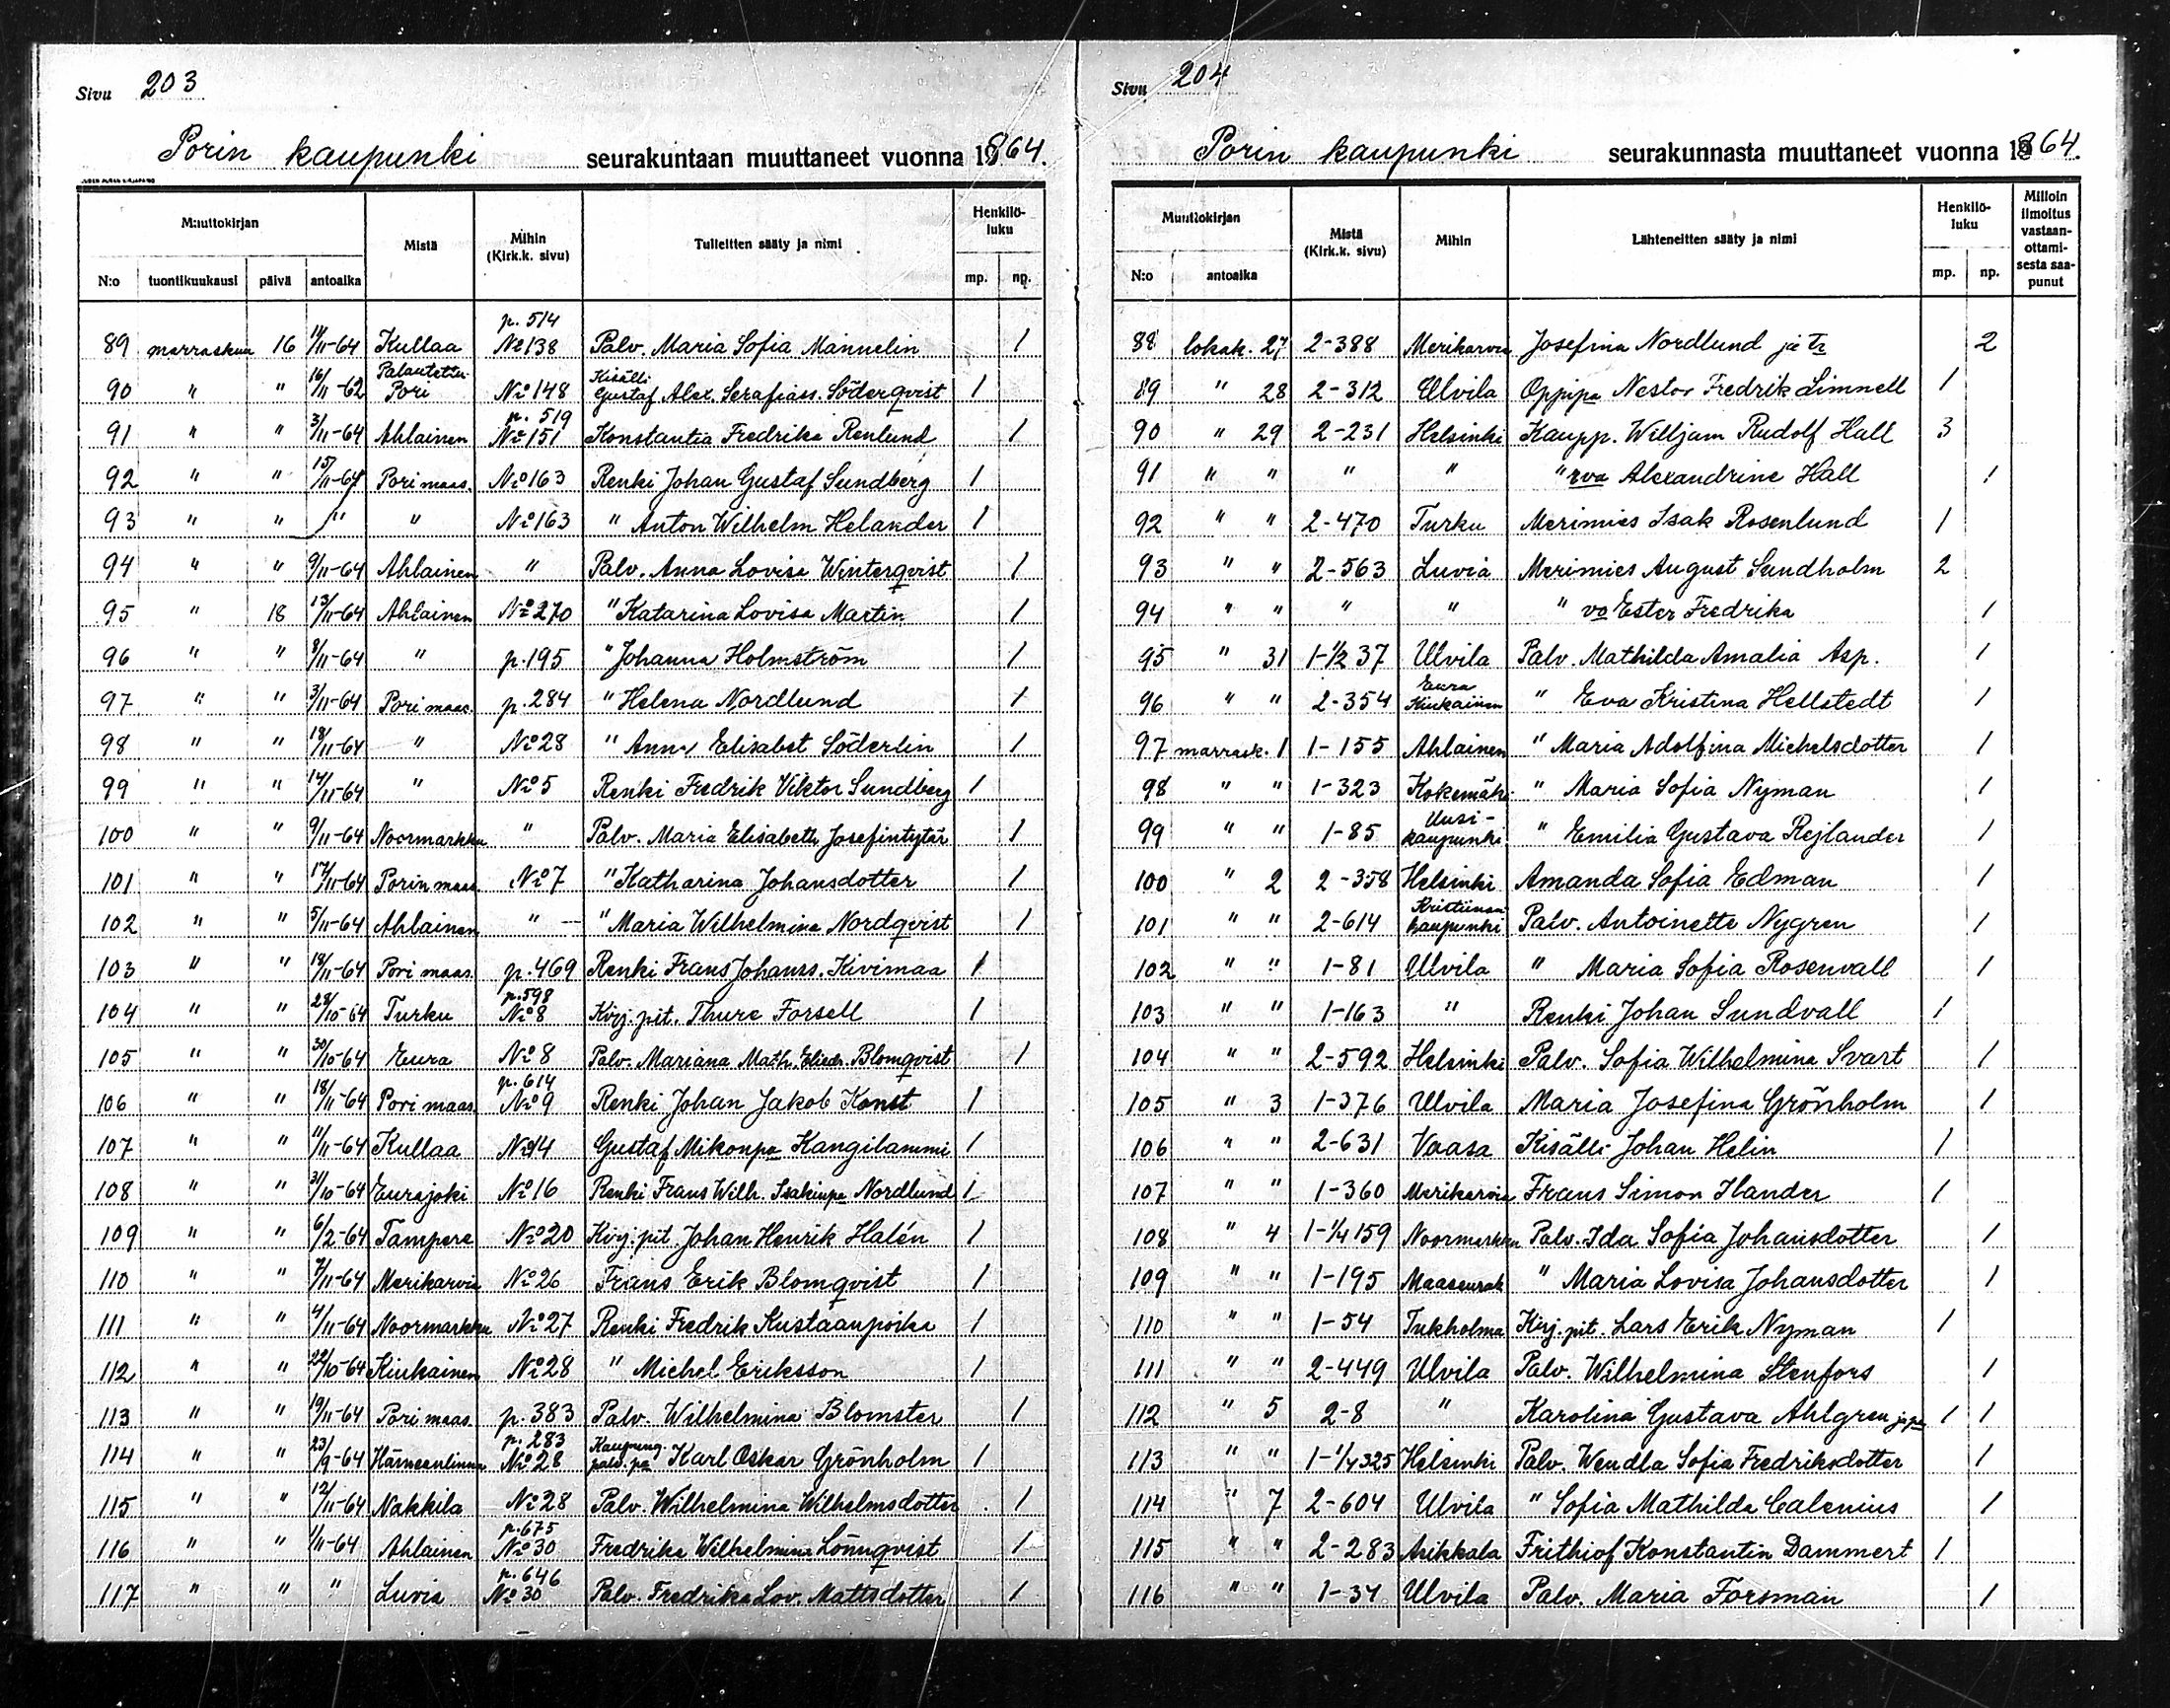 Sivu 203
Porin kaupunki seurakuntaan muuttaneet vuonna 1864.
Muuttokirjan
Mistä
Mihin (Kirk.k. sivu)
Tulleitten sääty ja nimi
Henkilö-luku
N:o tuontikuukausi päivä antoaika mp. np.
p. 514
89 marraskuu 16 11/11-64 Kullaa No 138 Palv. Maria Sofia Mannelin 1
Palautettu Kisälli
90 " " 16/11-62 Pori No 148 Gustaf Alex. Serafiass. Söderqvist 1
p. 519
91 " " 3/11-64 Ahlainen No 151 Konstantia Fredrika Renlund 1
92 " " 15/11-64 Pori maas. No 163 Renki Johan Gustaf Sundberg 1
93 " " " " No 163 " Anton Wilhelm Helander 1
94 " " 9/11-64 Ahlainen " Palv. Anna Lovisa Winterqvist 1
95 " 18 13/11-64 Ahlainen No 270 " Katarina Lovisa Martin 1
96 " " 8/11-64 " p. 195 " Johanna Holmström 1
97 " " 3/11-64 Pori maas. p. 284 " Helena Nordlund 1
98 " " 18/11-64 " No 28 " Anna Elisabet Söderlin 1
99 " " 14/11-64 " No 5 Renki Fredrik Viktor Sundberg 1
100 " " 9/11-64 Noormarkku " Palv. Maria Elisabeth Josefintytär 1
101 " " 17/11-64 Porin maas. No 7 " Katharina Johansdotter 1
102 " " 5/11-64 Ahlainen " " Maria Wilhelmina Nordqvist 1
103 " " 18/11-64 Pori maas. p. 469 Renki Frans Johanss. Kivimaa 1
p. 598
104 " " 28/10-64 Turku No 8 Kirj. pit. Thure Forsell 1
105 " " 30/10-64 Eura No 8 Palv. Mariana Math. Eliedr. Blomqvist 1
p. 614
106 " " 18/11-64 Pori maas. No 9 Renki Johan Jakob Konst 1
107 " " 11/11-64 Kullaa No 14 Gustaf Mikonpa Kangilammi 1
108 " " 31/10-64 Eurajoki No 16 Renki Frans Wilh. Isakinpa Nordlund 1
109 " " 6/2-64 Tampere No 20 Kirj. pit. Johan Henrik Halén 1
110 " " 7/11-64 Merikarvia No 26 Frans Erik Blomqvist 1
111 " " 4/11-64 Noormarkku No 27 Renki Fredrik Kustaanpoika 1
112 " " 22/10-64 Kiukainen No 28 " Michel Eriksson 1
113 " " 19/11-64 Pori maas. p. 383 Palv. Wilhelmina Blomster 1
p. 283 Kaupung.
114 " " 23/9-64 Hämeenlinna No 28 palv. pa Karl Oskar Grönholm 1
115 " " 12/11-64 Nakkila No 28 Palv. Wilhelmina Wilhelmsdotter 1
p. 675
116 " " 1/11-64 Ahlainen No 30 Fredrika Wilhelmina Lönnqvist 1
p. 646
117 " " " Luvia No 30 Palv. Fredrika Lov. Mattsdotter 1
Sivu 204
Porin kaupunki seurakunnasta muuttaneet vuonna 1864.
Muuttokirjan
Mistä (Kirk.k. sivu)
Mihin
Lähteneitten sääty ja nimi
Henkilö-luku
Milloin ilmoitus vastaan-ottami-sesta saa-punut
N:o antoaika mp. np.
88 lokak. 27 2-388 Merikarvia Josefina Nordlund ja tr 2
89 " 28 2-312 Ulvila Oppipa Nestor Fredrik Limnell 1
90 " 29 2-231 Helsinki Kaupp. Williäm Rudolf Hall 3
91 " " " " " rva Alexandrine Hall 1
92 " " 2-470 Turku Merimies Isak Rosenlund 1
93 " " 2-563 Luvia Merimies August Sundholm 2
94 " " " " " vo Ester Fredrika 1
95 " 31 1-1/2 37 Ulvila Palv. Mathilda Amalia Asp. 1
Eura
96 " " 2-354 Kiukainen " Eva Kristina Hellstedt 1
97 marrask. 1 1-155 Ahlainen " Maria Adolfina Michelsdotter 1
98 " " 1-323 Kokemäki " Maria Sofia Nyman 1
Uusi-
99 " " 1-85 kaupunki " Emilia Gustava Rejlander 1
100 " 2 2-358 Helsinki Amanda Sofia Edman 1
Kristiinan
101 " " 2-614 kaupunki Palv. Antoinette Nygren 1
102 " " 1-81 Ulvila " Maria Sofia Rosenvall 1
103 " " 1-163 " Renki Johan Sundvall 1
104 " " 2-592 Helsinki Palv. Sofia Wilhelmina Svart 1
105 " 3 1-376 Ulvila Maria Josefina Grönholm 1
106 " " 2-631 Vaasa Kisälli Johan Helin 1
107 " " 1-360 Merikarvia Frans Simon Ilander 1
108 " 4 1-1/4 159 Noormarkku Palv. Ida Sofia Johansdotter 1
109 " " 1-195 Maaseurak " Maria Lovisa Johansdotter 1
110 " " 1-54 Tukholma Kirj. pit. Lars Erik Nyman 1
111 " " 2-449 Ulvila Palv. Wilhelmina Stenfors 1
112 " 5 2-8 " Karolina Gustava Ahlgren ja pa 1 1
113 " " 1-1/4 325 Helsinki Palv. Wendla Sofia Fredriksdotter 1
114 " 7 2-604 Ulvila " Sofia Mathilda Calenius 1
115 " " 2-283 Asikkala Frithiof Konstantin Dammert 1
116 " " 1-34 Ulvila Palv. Maria Forsman 1